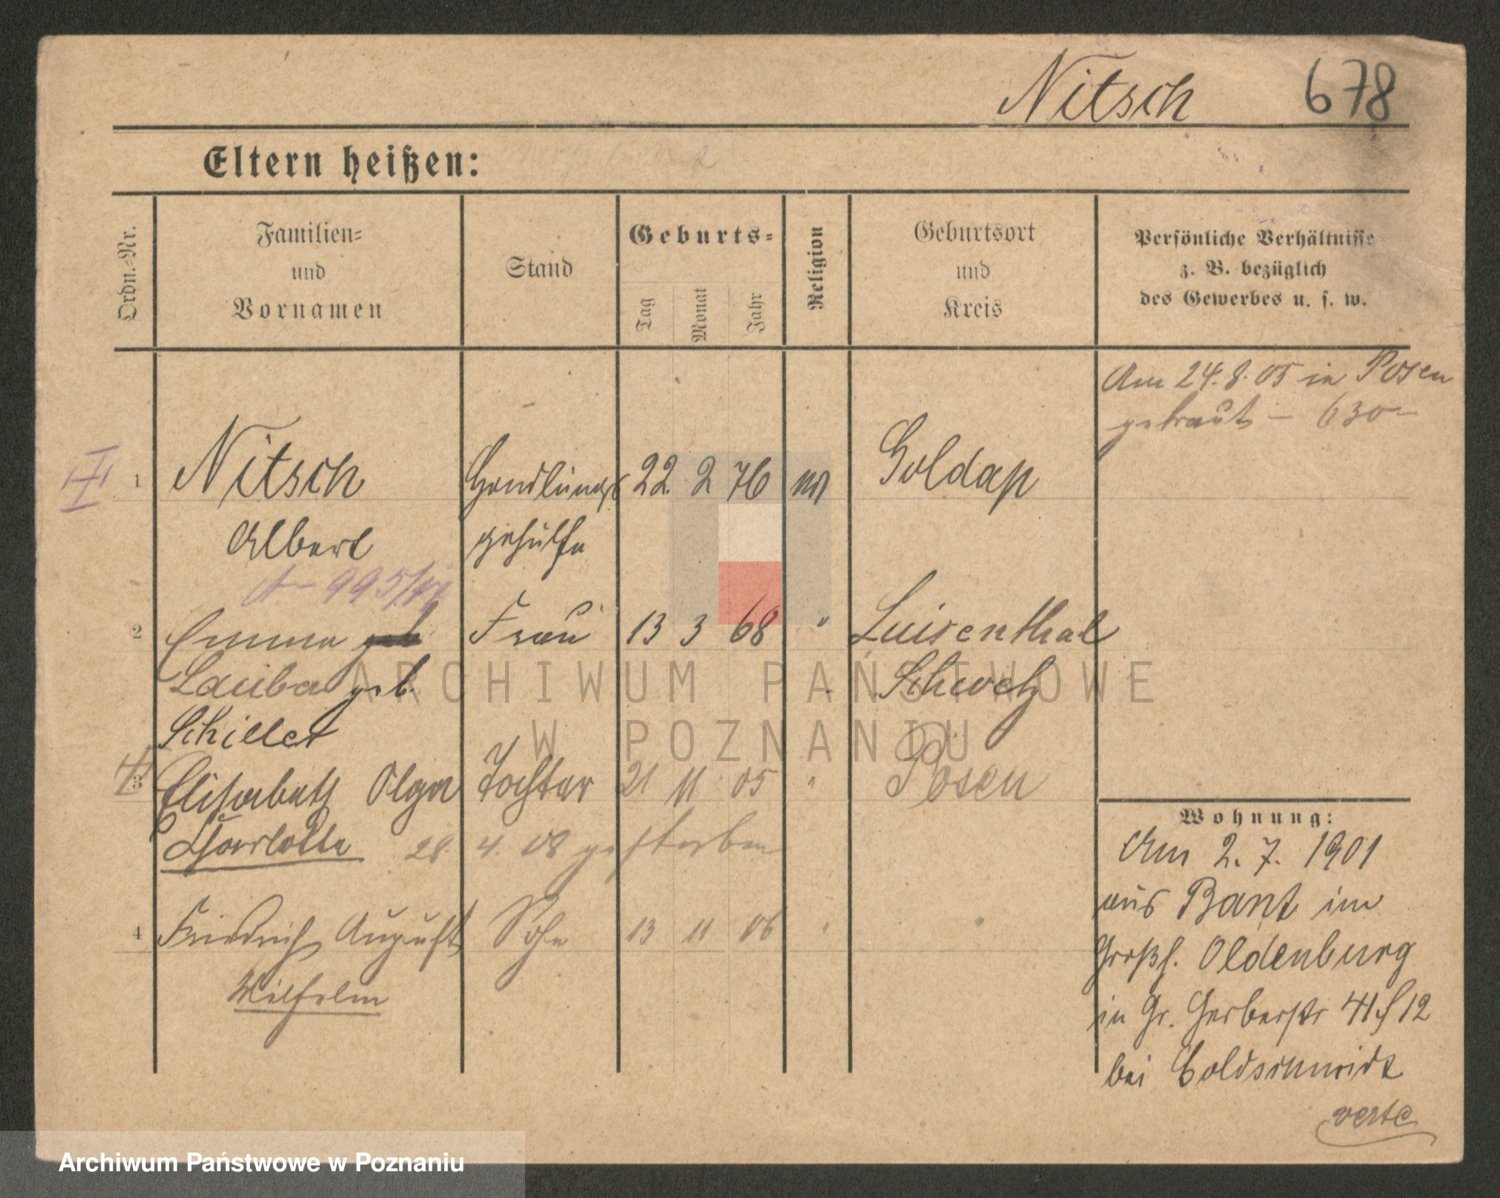 Nitsch 678
Eltern heißen:
Ordn.-Nr.
Familien-
und
Vornamen
Stand
Geburts-
Tag
Monat
Jahr
Religion
Geburtsort
und
Kreis
Persönliche Verhältnisse
z. B. bezüglich
des Gewerbes u. s. w.
Am 24.8.05 in Posen
getraut – 630–
1 Nitsch Handlungs 22. 2 76 Goldap
Albert gehülfe
A – 995/
2 Emma geb Frau 13 3 68 " Luisenthal
Lauba geb. Schwetz
Schiller
3 Elisabeth Olga Tochter 21 11 05 " Posen
Charlotte 28. 4. 08 gestorben
4 Friedrich August Sohn 13 11 06 " "
Wilhelm
Wohnung:
Am 2. 7. 1901
aus Bant im
Großh. Oldenburg
in Gr. Gerberstr 41 12
bei Goldschmidt
verte
ARCHIWUM PAŃSTWOWE
W POZNANIU
Archiwum Państwowe w Poznaniu